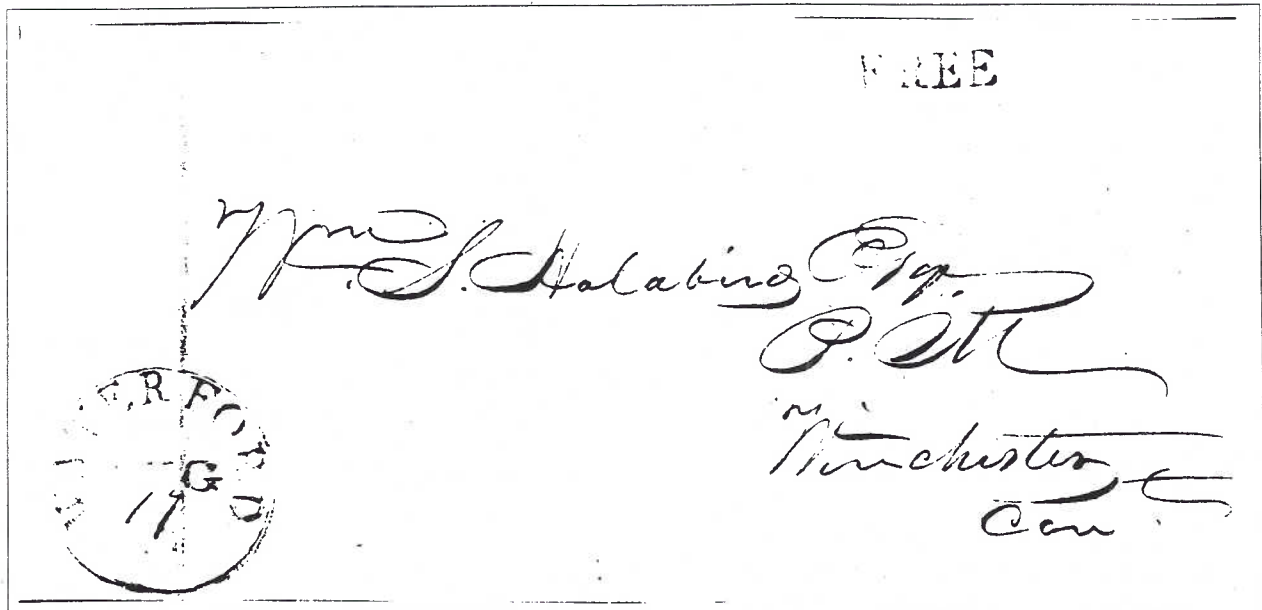 FREE
Wm. S. Holabird Esq.
P. M
Winchester
Con
19